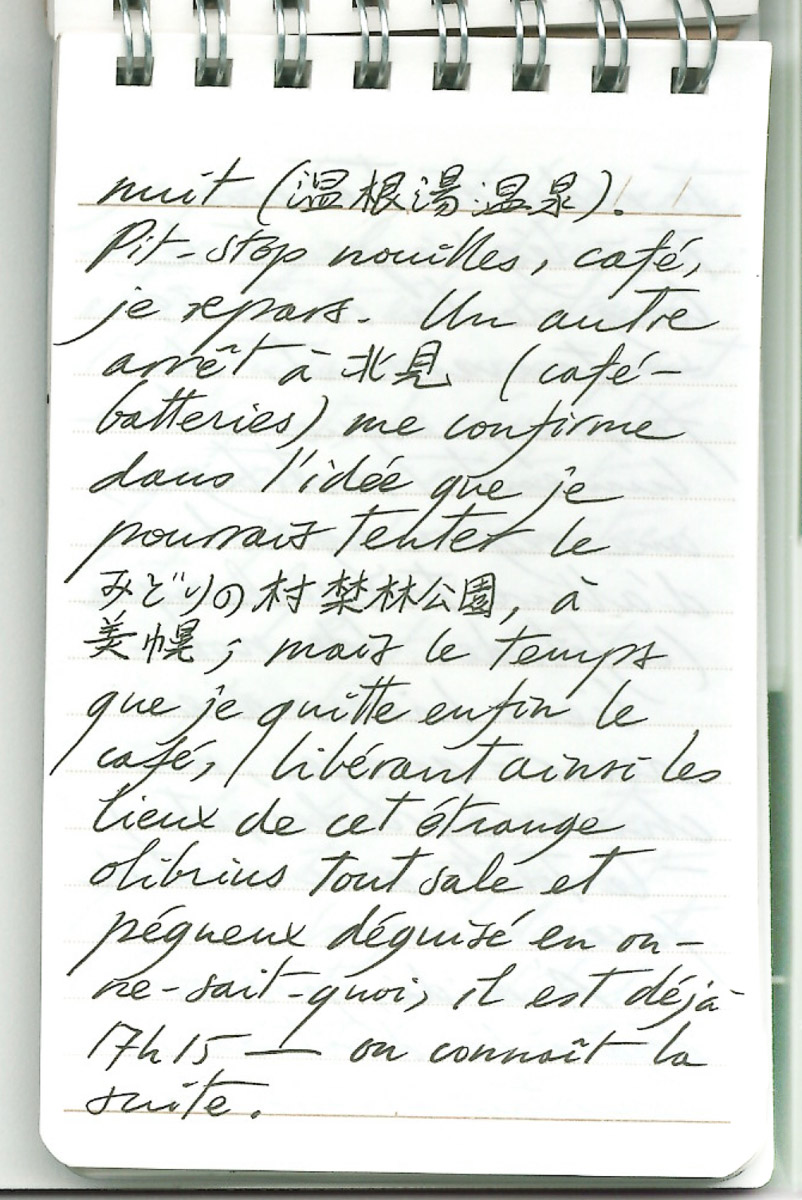 nuit (温根湯温泉).
Pit-stop nouilles, café,
je repars. Un autre
arrêt à 北見 (café-
batteries) me confirme
dans l'idée que je
pourrais tenter le
みどりの村 林公園, à
美幌; mais le temps
que je quitte enfin le
café, libérant ainsi les
lieux de cet étrange
olibrius tout sale et
pégueux déguisé en on-
ne-sait-quoi, il est déjà
17h15 — on connaît la
suite.